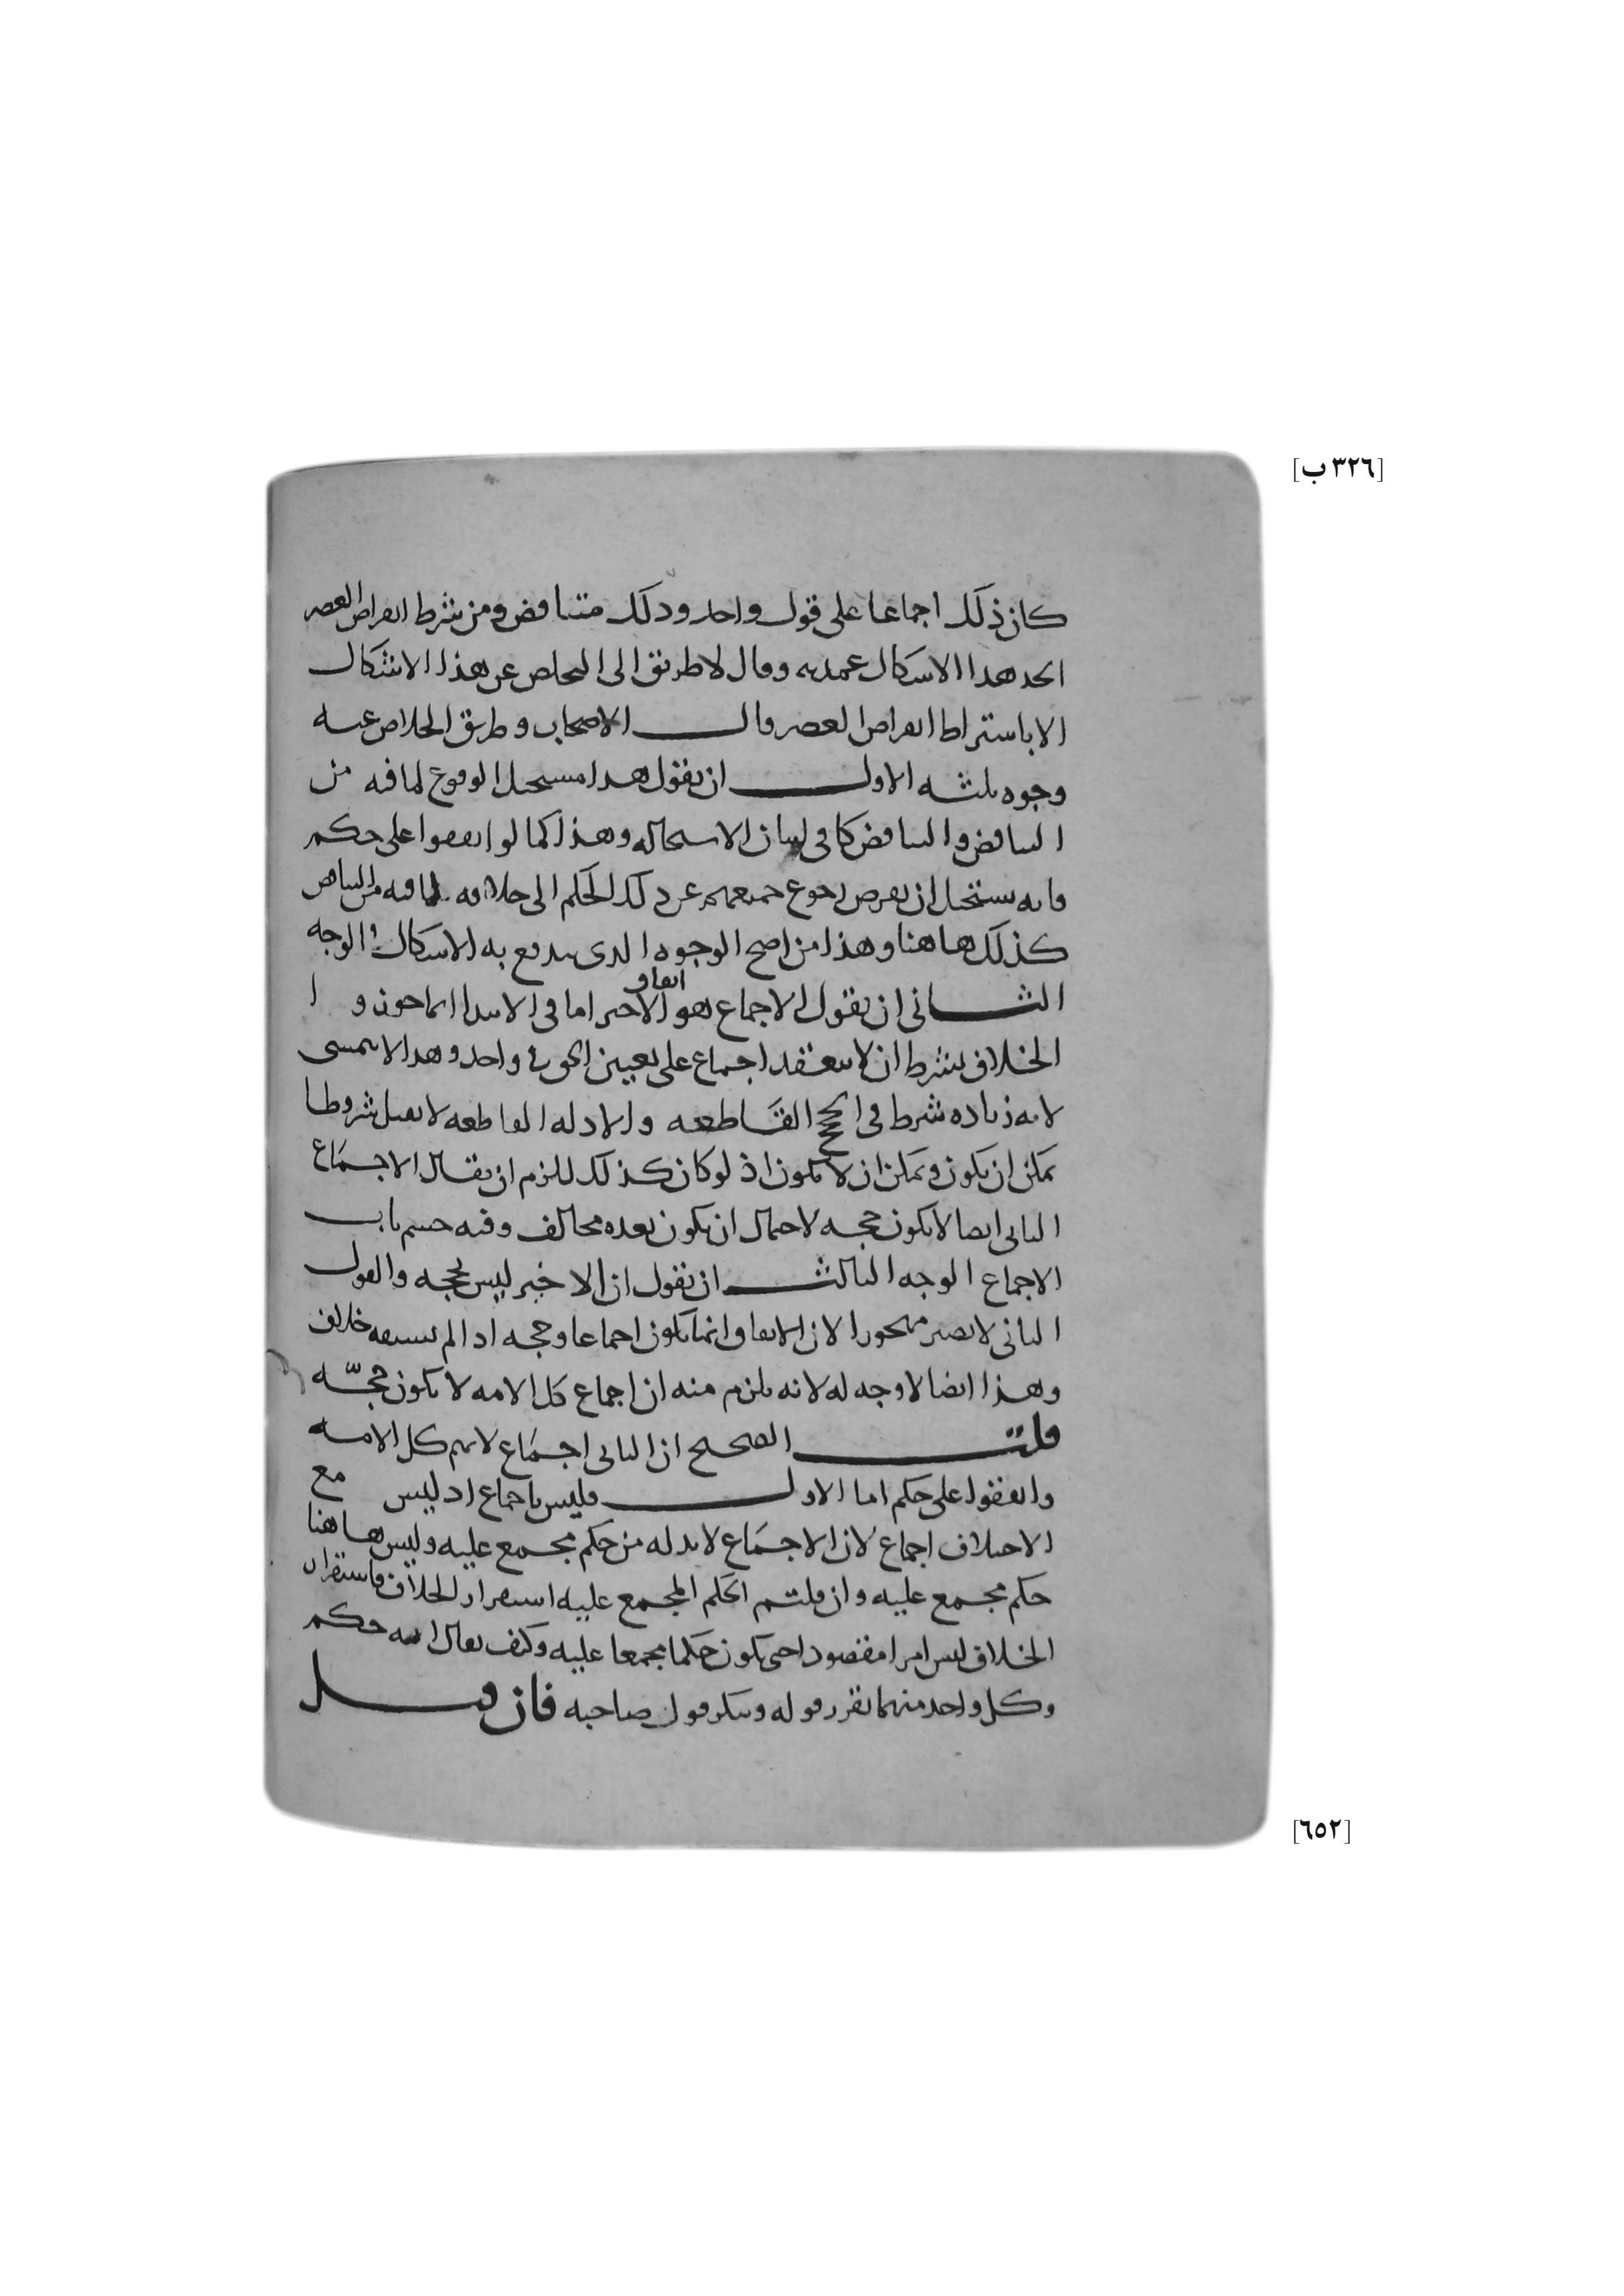 [٣٢٦ ب]
كان ذلك اجماعا على قول واحد وذلك متناقض ومن شرط انقراض العصر
اتخذ هذا الاشكال عمدته وقال لا طريق الى التخلص عن هذا الاشكال
الا باشتراط انقراض العصر وقال الاصحاب وطريق الخلاص عنه
وجوه ثلثه الاول ان نقول هذا مستحيل الوقوع لما فيه من
التناقض والتناقض كافي لبيان الاستحاله وهذا كما لو اتفقوا على حكم
فانه يستحيل ان يفرض رجوع جميعهم عن ذلك الحكم الى خلافه لما فيه من التناقض
كذلك هاهنا وهذا من اصح الوجوه الذي يندفع به الاشكال والوجه
الثاني ان نقول الاجماع هو اتفاق الاخير اما في الابتدا انما جوزوا
الخلاف بشرط ان لا ينعقد اجماع على تعيين الحق في واحد وهذا لا يتمشى
لانه زياده شرط في الحجج القاطعه والادله القاطعه لا تقبل شروطا
يمكن ان يكون ويمكن ان لا يكون اذ لو كان كذلك للزم ان يقال الاجماع
الثاني ايضا لا يكون حجه لاحتمال ان يكون بعده مخالف وفيه حسم باب
الاجماع الوجه الثالث ان نقول ان الاخير ليس بحجه والقول
الثاني لا يصير مهجورا لان الاتفاق انما يكون اجماعا وحجه اذا لم يسبقه خلاف
وهذا ايضا لا وجه له لانه يلزم منه ان اجماع كل الامه لا يكون حجّه
قلت الصحيح ان الثاني اجماع لانهم كل الامه
واتفقوا على حكم اما الاول فليس باجماع اذ ليس مع
الاختلاف اجماع لان الاجماع لا بد له من حكم مجمع عليه وليس هاهنا
حكم مجمع عليه وان قلتم الحكم المجمع عليه استقرار الخلاف فاستقرار
الخلاف ليس امرا مقصودا حتى يكون حكما مجمعا عليه وكيف يقال انه حكم
وكل واحد منهما يقرر قوله وينكر قول صاحبه فان قيل
[٦٥٢]